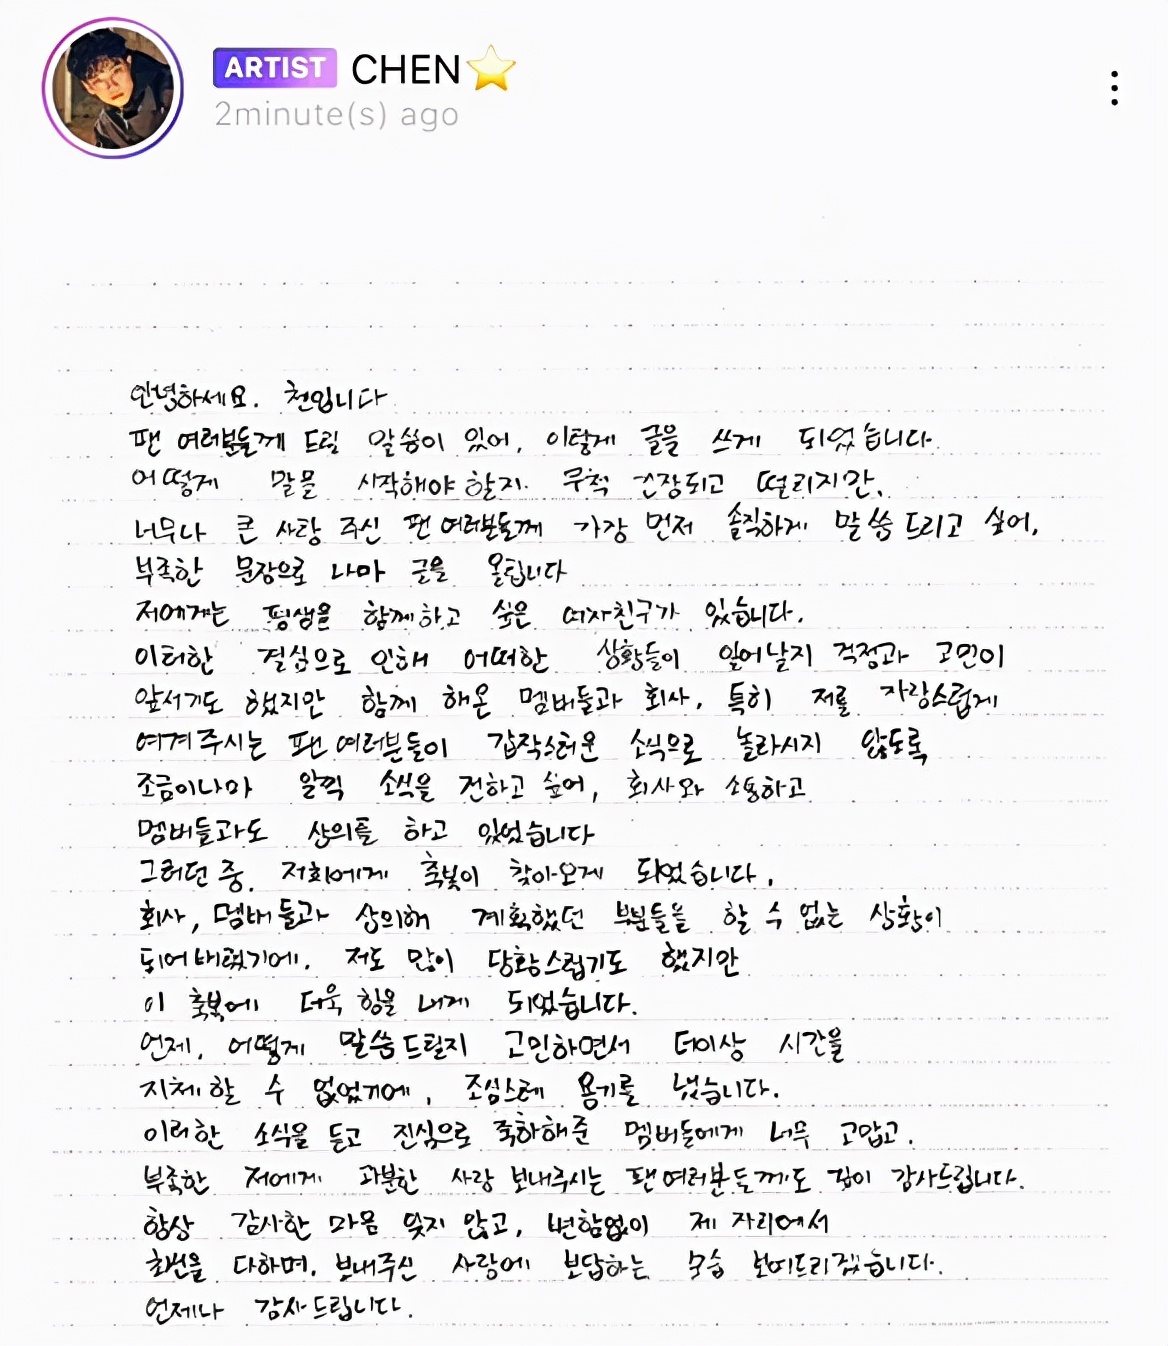 ARTIST CHEN⭐
2minute(s) ago
안녕하세요. 첸입니다
팬 여러분들께 드릴 말씀이 있어, 이렇게 글을 쓰게 되었습니다.
어떻게 말을 시작해야 할지 무척 긴장되고 떨리지만,
너무나 큰 사랑 주신 팬 여러분들께 가장 먼저 솔직하게 말씀드리고 싶어,
부족한 문장으로 나마 글을 올립니다
저에게는 평생을 함께하고 싶은 여자친구가 있습니다.
이러한 결심으로 인해 어떠한 상황들이 일어날지 걱정과 고민이
앞서기도 했지만 함께 해온 멤버들과 회사, 특히 저를 자랑스럽게
여겨주시는 팬 여러분들이 갑작스러운 소식으로 놀라시지 않도록
조금이나마 일찍 소식을 전하고 싶어, 회사와 소통하고
멤버들과도 상의를 하고 있었습니다
그러던 중, 저희에게 축복이 찾아오게 되었습니다.
회사, 멤버들과 상의해 계획했던 부분들을 할 수 없는 상황이
되어버렸기에, 저도 많이 당황스럽기도 했지만
이 축복에 더욱 힘을 내게 되었습니다.
언제, 어떻게 말씀드릴지 고민하면서 더이상 시간을
지체할 수 없었기에, 조심스레 용기를 냈습니다.
이러한 소식을 듣고 진심으로 축하해준 멤버들에게 너무 고맙고,
부족한 저에게 과분한 사랑 보내주시는 팬 여러분들께도 깊이 감사드립니다.
항상 감사한 마음 잊지 않고, 변함없이 제 자리에서
최선을 다하며, 보내주신 사랑에 보답하는 모습 보여드리겠습니다.
언제나 감사드립니다.